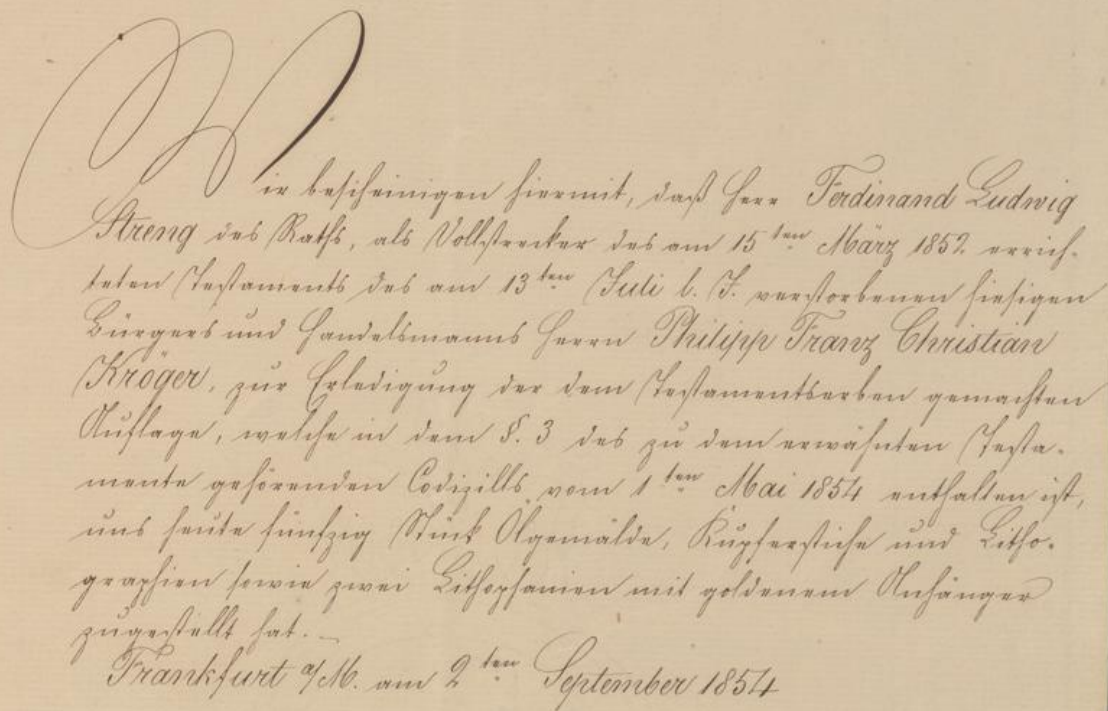 Wir bescheinigen hiermit, daß Herr Ferdinand Ludwig
Streng des Raths, als Vollstrecker des am 15ten März 1852 errich-
teten Testaments des am 13ten Juli l. J. verstorbenen hiesigen
Bürgers und Handelsmanns Herrn Philipp Franz Christian
Kröger, zur Erledigung der dem Testamentserben gemachten
Auflage, welche in dem §. 3 des zu dem erwähnten Testa-
mente gehörenden Codizills vom 1ten Mai 1854 enthalten ist,
uns heute fünfzig Stück Ölgemälde, Kupferstiche und Litho-
graphien sowie zwei Lithophanien mit goldenem Anhänger
zugestellt hat. –
Frankfurt a/M. am 2ten September 1854